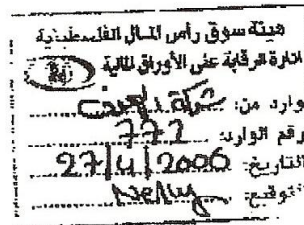 هيئة سوق رأس المال الفلسطينية
ادارة الرقابة على الأوراق المالية
وارد من: شركة
رقم الوارد: 772
التاريخ: 27/4/2006
التوقيع: Nelly